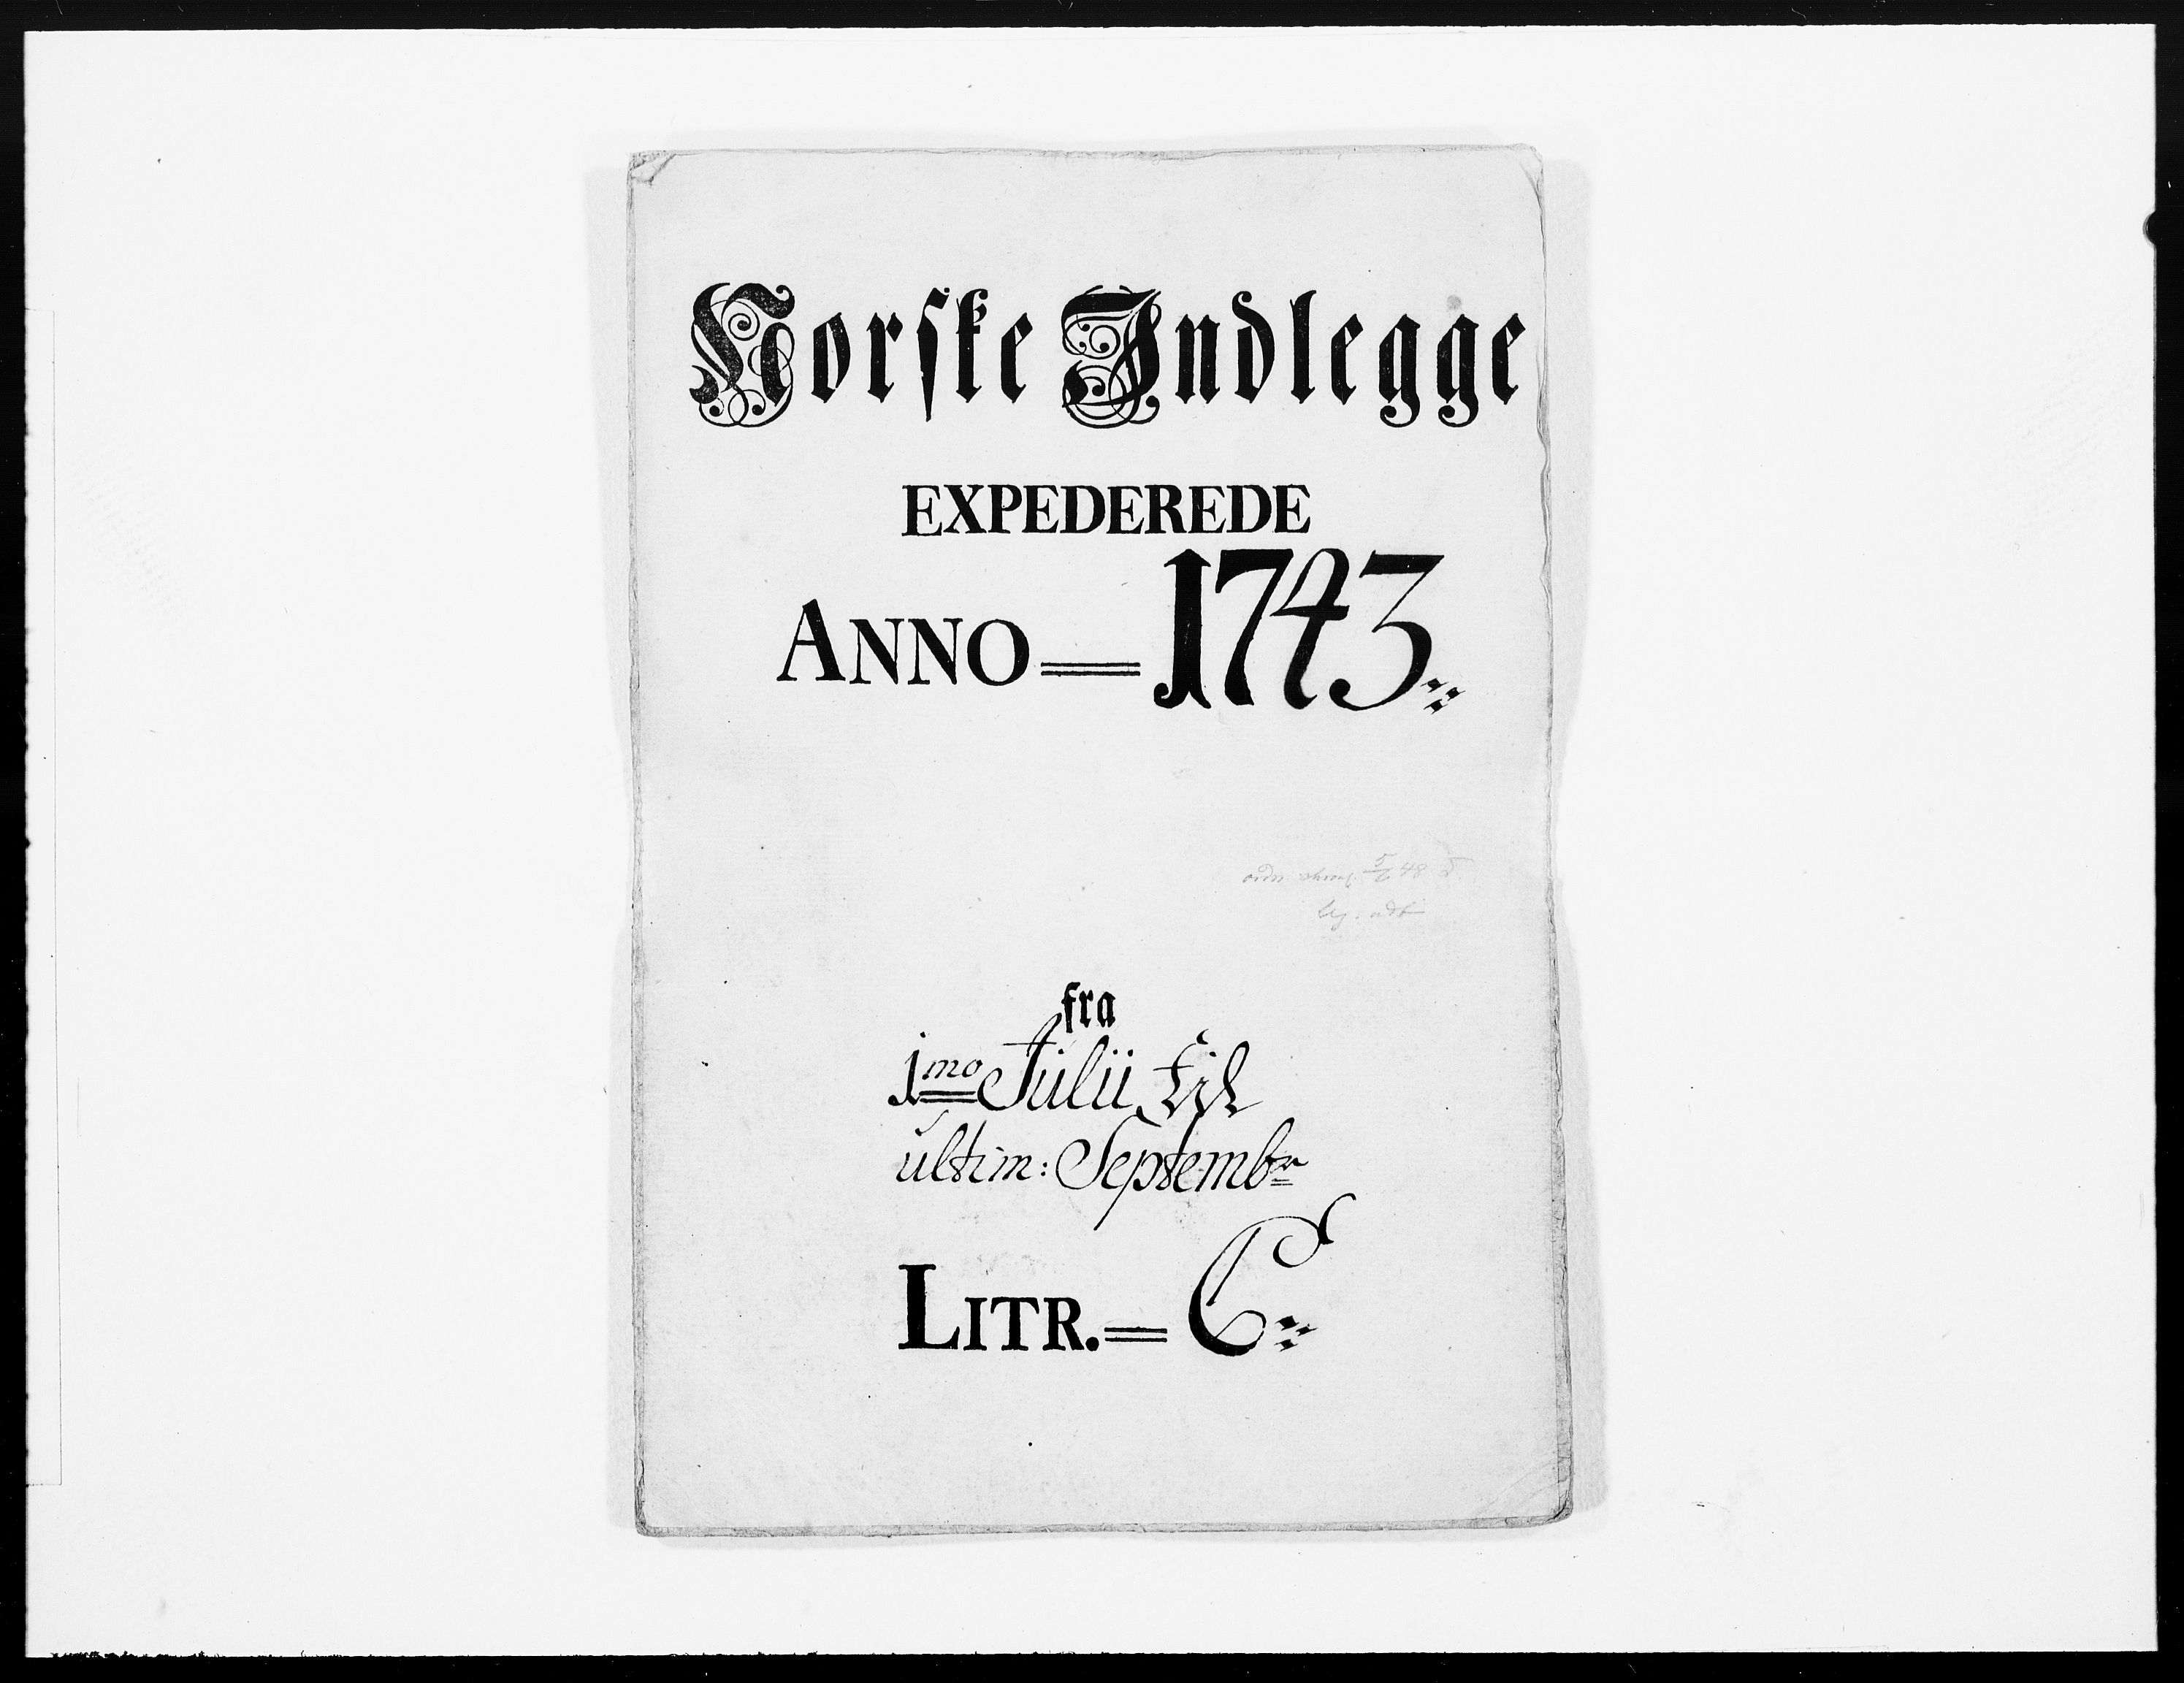 Norske Indlegge
EXPEDEREDE
ANNO = 1743
fra
1mo Julii til
ultim: Septembr
LITR. = C